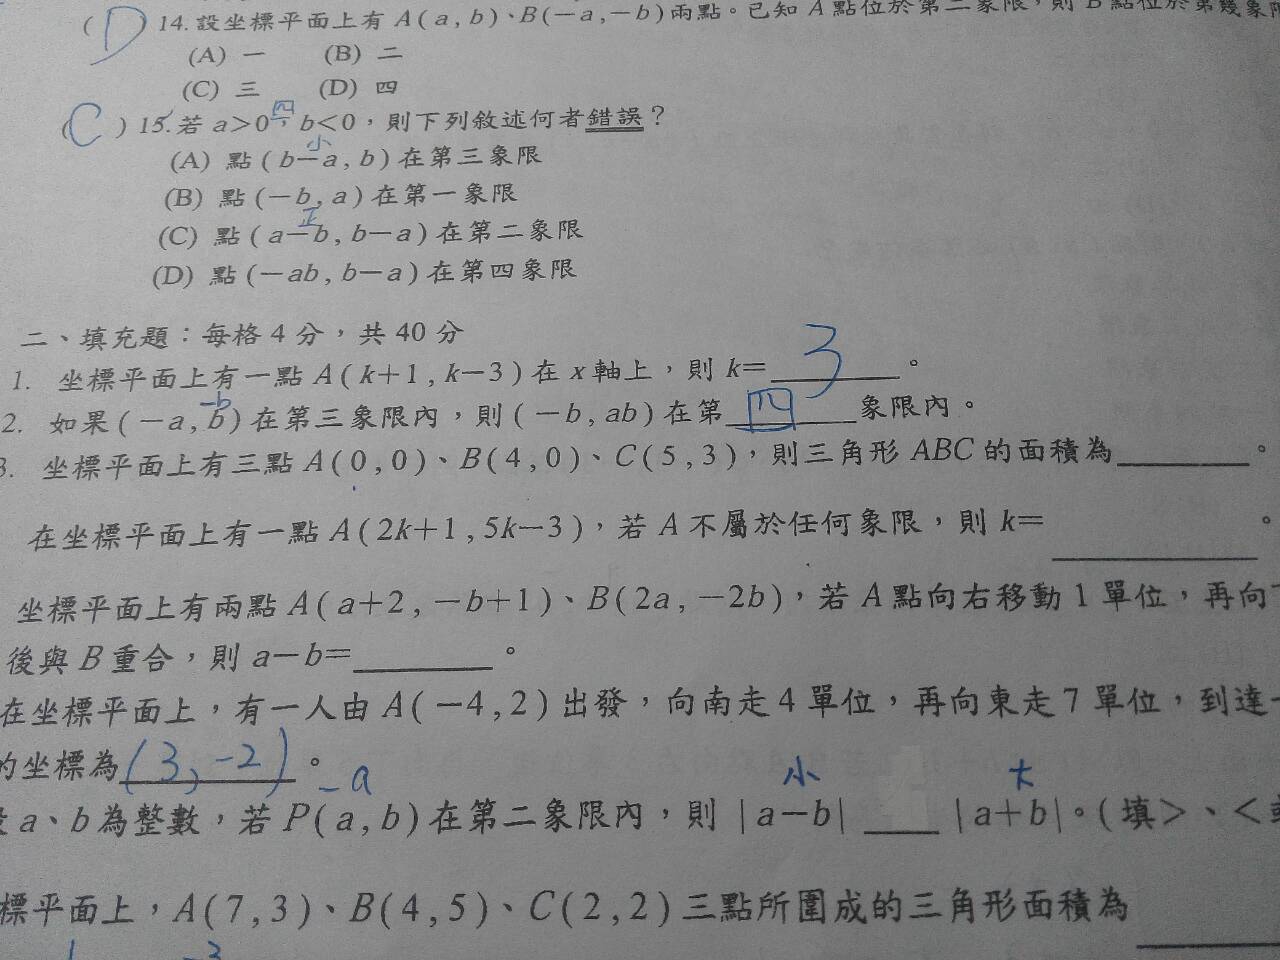 ( D ) 14. 設坐標平面上有 A(a, b)、B(－a, －b) 兩點。已知 A 點位於第二象限，則 B 點位於第幾象限
(A) 一 (B) 二
(C) 三 (D) 四
四
( C ) 15. 若 a＞0，b＜0，則下列敘述何者錯誤？
小
(A) 點 (b－a, b) 在第三象限
(B) 點 (－b, a) 在第一象限
正
(C) 點 (a－b, b－a) 在第二象限
(D) 點 (－ab, b－a) 在第四象限
二、填充題：每格 4 分，共 40 分
1. 坐標平面上有一點 A(k＋1, k－3) 在 x 軸上，則 k＝ 3 。
－b
2. 如果 (－a, b) 在第三象限內，則 (－b, ab) 在第 四 象限內。
3. 坐標平面上有三點 A(0, 0)、B(4, 0)、C(5, 3)，則三角形 ABC 的面積為 。
在坐標平面上有一點 A(2k＋1, 5k－3)，若 A 不屬於任何象限，則 k＝ 。
坐標平面上有兩點 A(a＋2, －b＋1)、B(2a, －2b)，若 A 點向右移動 1 單位，再向
後與 B 重合，則 a－b＝ 。
在坐標平面上，有一人由 A(－4, 2) 出發，向南走 4 單位，再向東走 7 單位，到達
的坐標為 (3, －2) 。
－a 小 大
a、b 為整數，若 P(a, b) 在第二象限內，則 |a－b| |a＋b|。(填＞、＜
標平面上，A(7, 3)、B(4, 5)、C(2, 2) 三點所圍成的三角形面積為